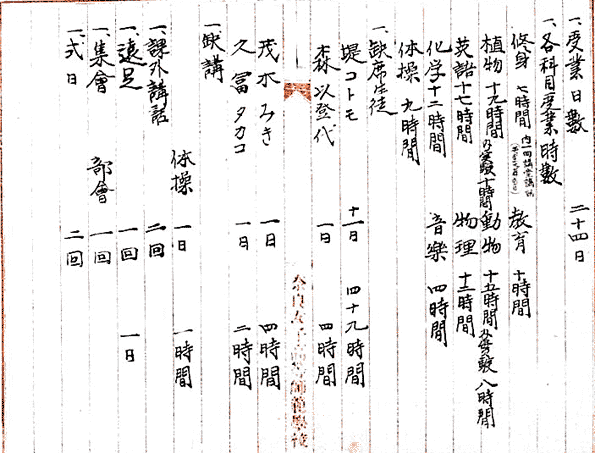 一、受業日數 二十四日
一、各科目受業時數
修身 七時間 内一回講堂講話 教育 十時間
植物 十九時間 及実験十時間 動物 十五時間 及実験八時間
英語 十七時間 物理 十二時間
化学 十二時間 音樂 四時間
体操 九時間
一、缺席生徒
堤コトモ 十一日 四十九時間
森以登代 一日 四時間
奈良女子高等師範學校
茂木みき 一日 四時間
久冨タカコ 一日 二時間
一缺講
体操 一日 一時間
一、課外講話 二回
一、遠足 一回 一日
一、集會 部會 一回
一、式日 二回